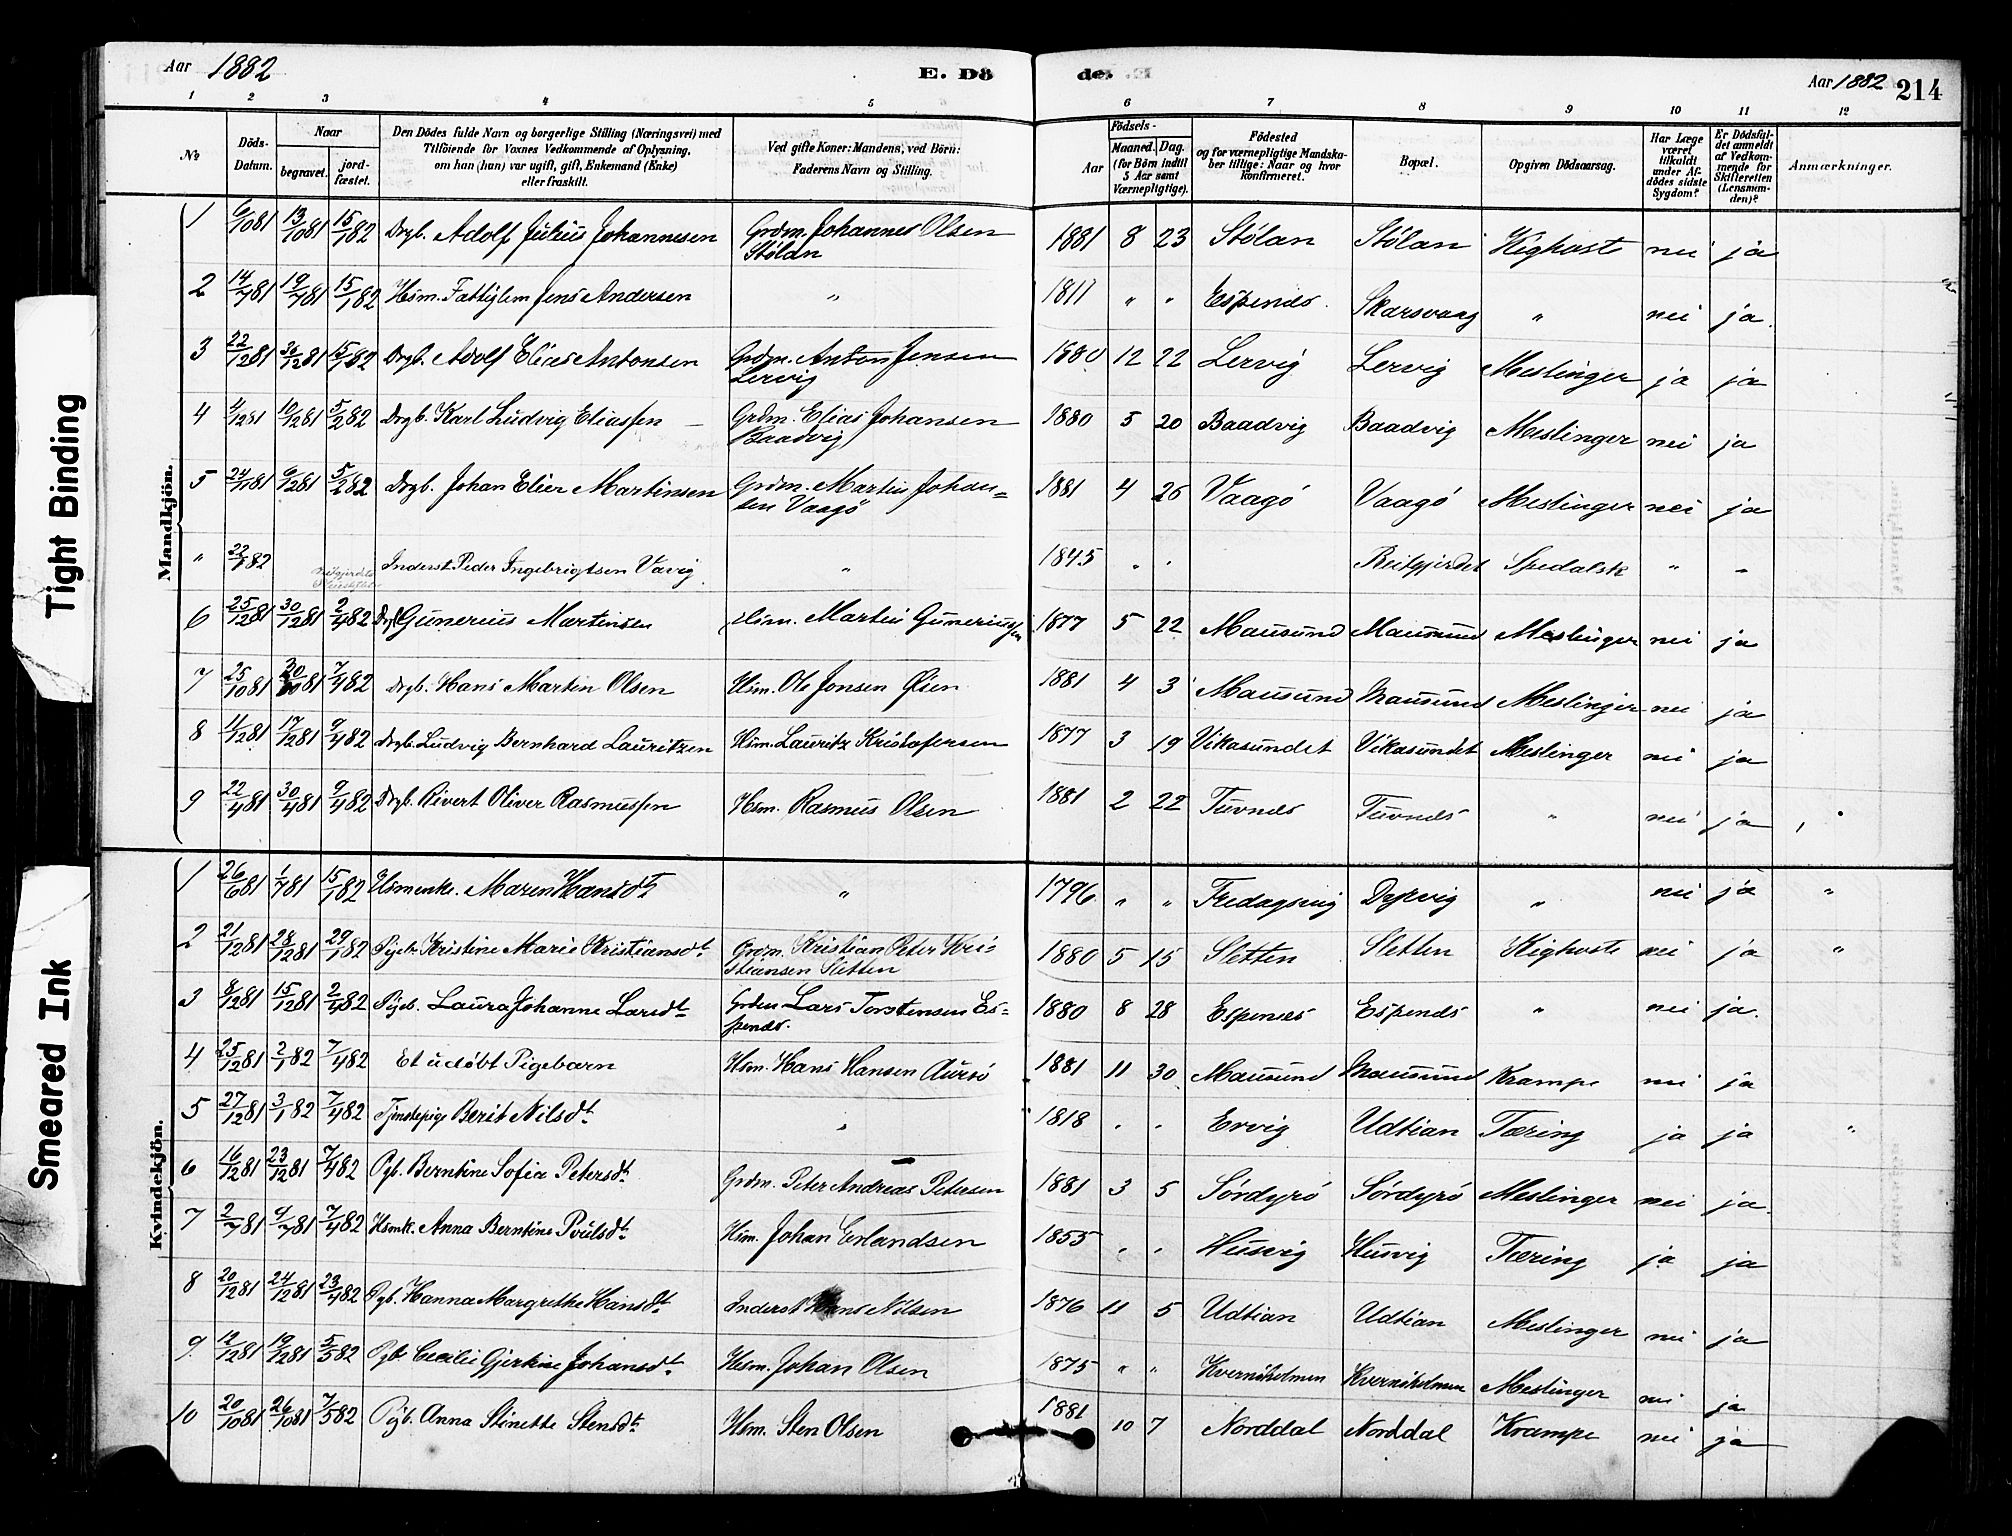 Aar 1882
E. Dø
de.
Aar 1882
214
1 2 3 4 5 6 7 8 9 10 11 12
No
Döds-Datum.
Naar begravet. jord-fæstet.
Den Dödes fulde Navn og borgerlige Stilling (Næringsvei) med Tilföiende for Voxnes Vedkommende af Oplysning, om han (hun) var ugift, gift, Enkemand (Enke) eller fraskilt.
Ved gifte Koner: Mandens, ved Börn: Faderens Navn og Stilling.
Födsels- Aar Maaned. Dag. (for Börn indtil 5 Aar samt Værnepligtige).
Födested og for værnepligtige Mandskaber tillige: Naar og hvor konfirmeret.
Bopæl.
Opgiven Dödsaarsag.
Har Læge været tilkaldt under Afdödes sidste Sygdom?
Er Dödsfaldet anmeldt af Vedkommende for Skifteretten (Lensmanden)?
Anmærkninger.
Mandkjön.
1 6/10 81 13/10 81 15/1 82 Drgb. Adolf Julius Johannesen Grdm. Johannes Olsen Stölan 1881 8 23 Stölan Stölan Kighoste nei ja
2 14/7 81 19/7 81 15/1 82 Hsm. Fattiglem Jens Andersen " 1811 " " Espenes Skarsvaag " nei ja.
3 22/12 81 30/12 81 15/1 82 Drgb. Adolf Elias Antonsen Grdm. Anton Jensen Lervig 1880 12 22 Lervig Lervig Meslinger ja ja
4 4/12 81 10/12 81 5/2 82 Drgb. Karl Ludvig Eliassen Grdm. Elias Johansen Baadvig 1880 5 20 Baadvig Baadvig Meslinger nei ja
5 24/11 81 6/12 81 5/2 82 Drgb. Johan Elier Martinsen Grdm. Martin Johansen Vaagö 1881 4 26 Vaagö Vaagö Meslinger nei ja
" 22/1 82 Inderst Peder Ingebrigtsen Vavig " 1845 " " Reitgjerdet Spedalsk " "
6 25/12 81 30/12 81 2/4 82 Drgb. Gunerius Martinsen Hsm. Martin Guneriussen 1877 5 22 Mausund Mausund Meslinger nei ja
7 25/10 81 30/10 81 7/4 82 Drgb. Hans Martin Olsen Hsm. Ole Jonsen Öien 1881 4 3 Mausund Mausund Meslinger nei ja
8 11/12 81 17/12 81 9/4 82 Drgb. Ludvig Bernhard Lauritzen Hsm. Lauritz Kristofersen 1877 3 19 Vikasundet Vikasundet Meslinger nei ja
9 22/4 81 30/4 81 9/4 82 Drgb. Sivert Oliver Rasmussen Hsm. Rasmus Olsen 1881 2 22 Tuvnes Tuvnes " nei ja
Kvindekjön.
1 26/6 81 1/7 81 15/1 82 Hsmenke. Maren Hansdt " 1796 " " Fredagsvig Dyrvig " nei ja "
2 21/12 81 28/12 81 29/1 82 Pigeb. Kristine Marie Kristiansdt Grdm. Kristian Peter Kristiansen Sletten 1880 5 15 Sletten Sletten Kighoste nei ja "
3 8/12 81 15/12 81 2/4 82 Pigeb. Laura Johanne Larsdt Grdm Lars Torstensen Espenes. 1880 8 28 Espenes Espenes " nei ja.
4 25/12 81 2/1 82 7/4 82 Et udöbt Pigebarn Hsm. Hans Hansen Aursö 1881 11 30 Mausund Mausund Krampe nei ja
5 27/12 81 3/1 82 7/4 82 Tjenstepige Berit Nilsdt " 1818 " " Ervig Udtian Tæring ja ja "
6 16/12 81 23/12 81 7/4 82 Pgb. Berntine Sofia Petersdt Grdm. Peter Andreas Petersen 1881 3 5 Sördyrö Sördyrö Meslinger nei ja.
7 2/7 81 9/7 81 7/4 82 Hsmk. Anna Berntine Poulsdt Hsm. Johan Erlandsen 1855 " " Husvig Husvig Tæring ja ja
8 20/12 81 24/12 81 23/4 82 Pgb. Hanna Margrethe Hansdt Inderst Hans Nilsen 1876 11 5 Udtian Udtian Meslinger nei ja
9 12/12 81 19/12 81 5/5 82 Pgb. Cecilie Gjertine Johansdt Hsm. Johan Olsen 1875 " " Kvernöholmen Kvernöholmen Meslinger nei ja
10 20/10 81 26/10 81 7/5 82 Pgb. Anna Stinette Stensdt Hsm. Sten Olsen 1881 10 7 Norddal Norddal Krampe nei ja
Tight Binding
Smeared Ink